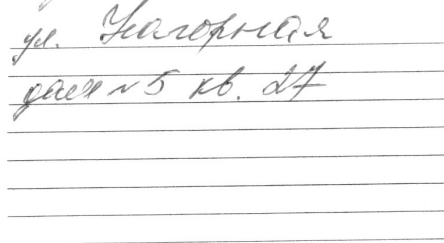 ул. Нагорная
дом №5 кв. 27